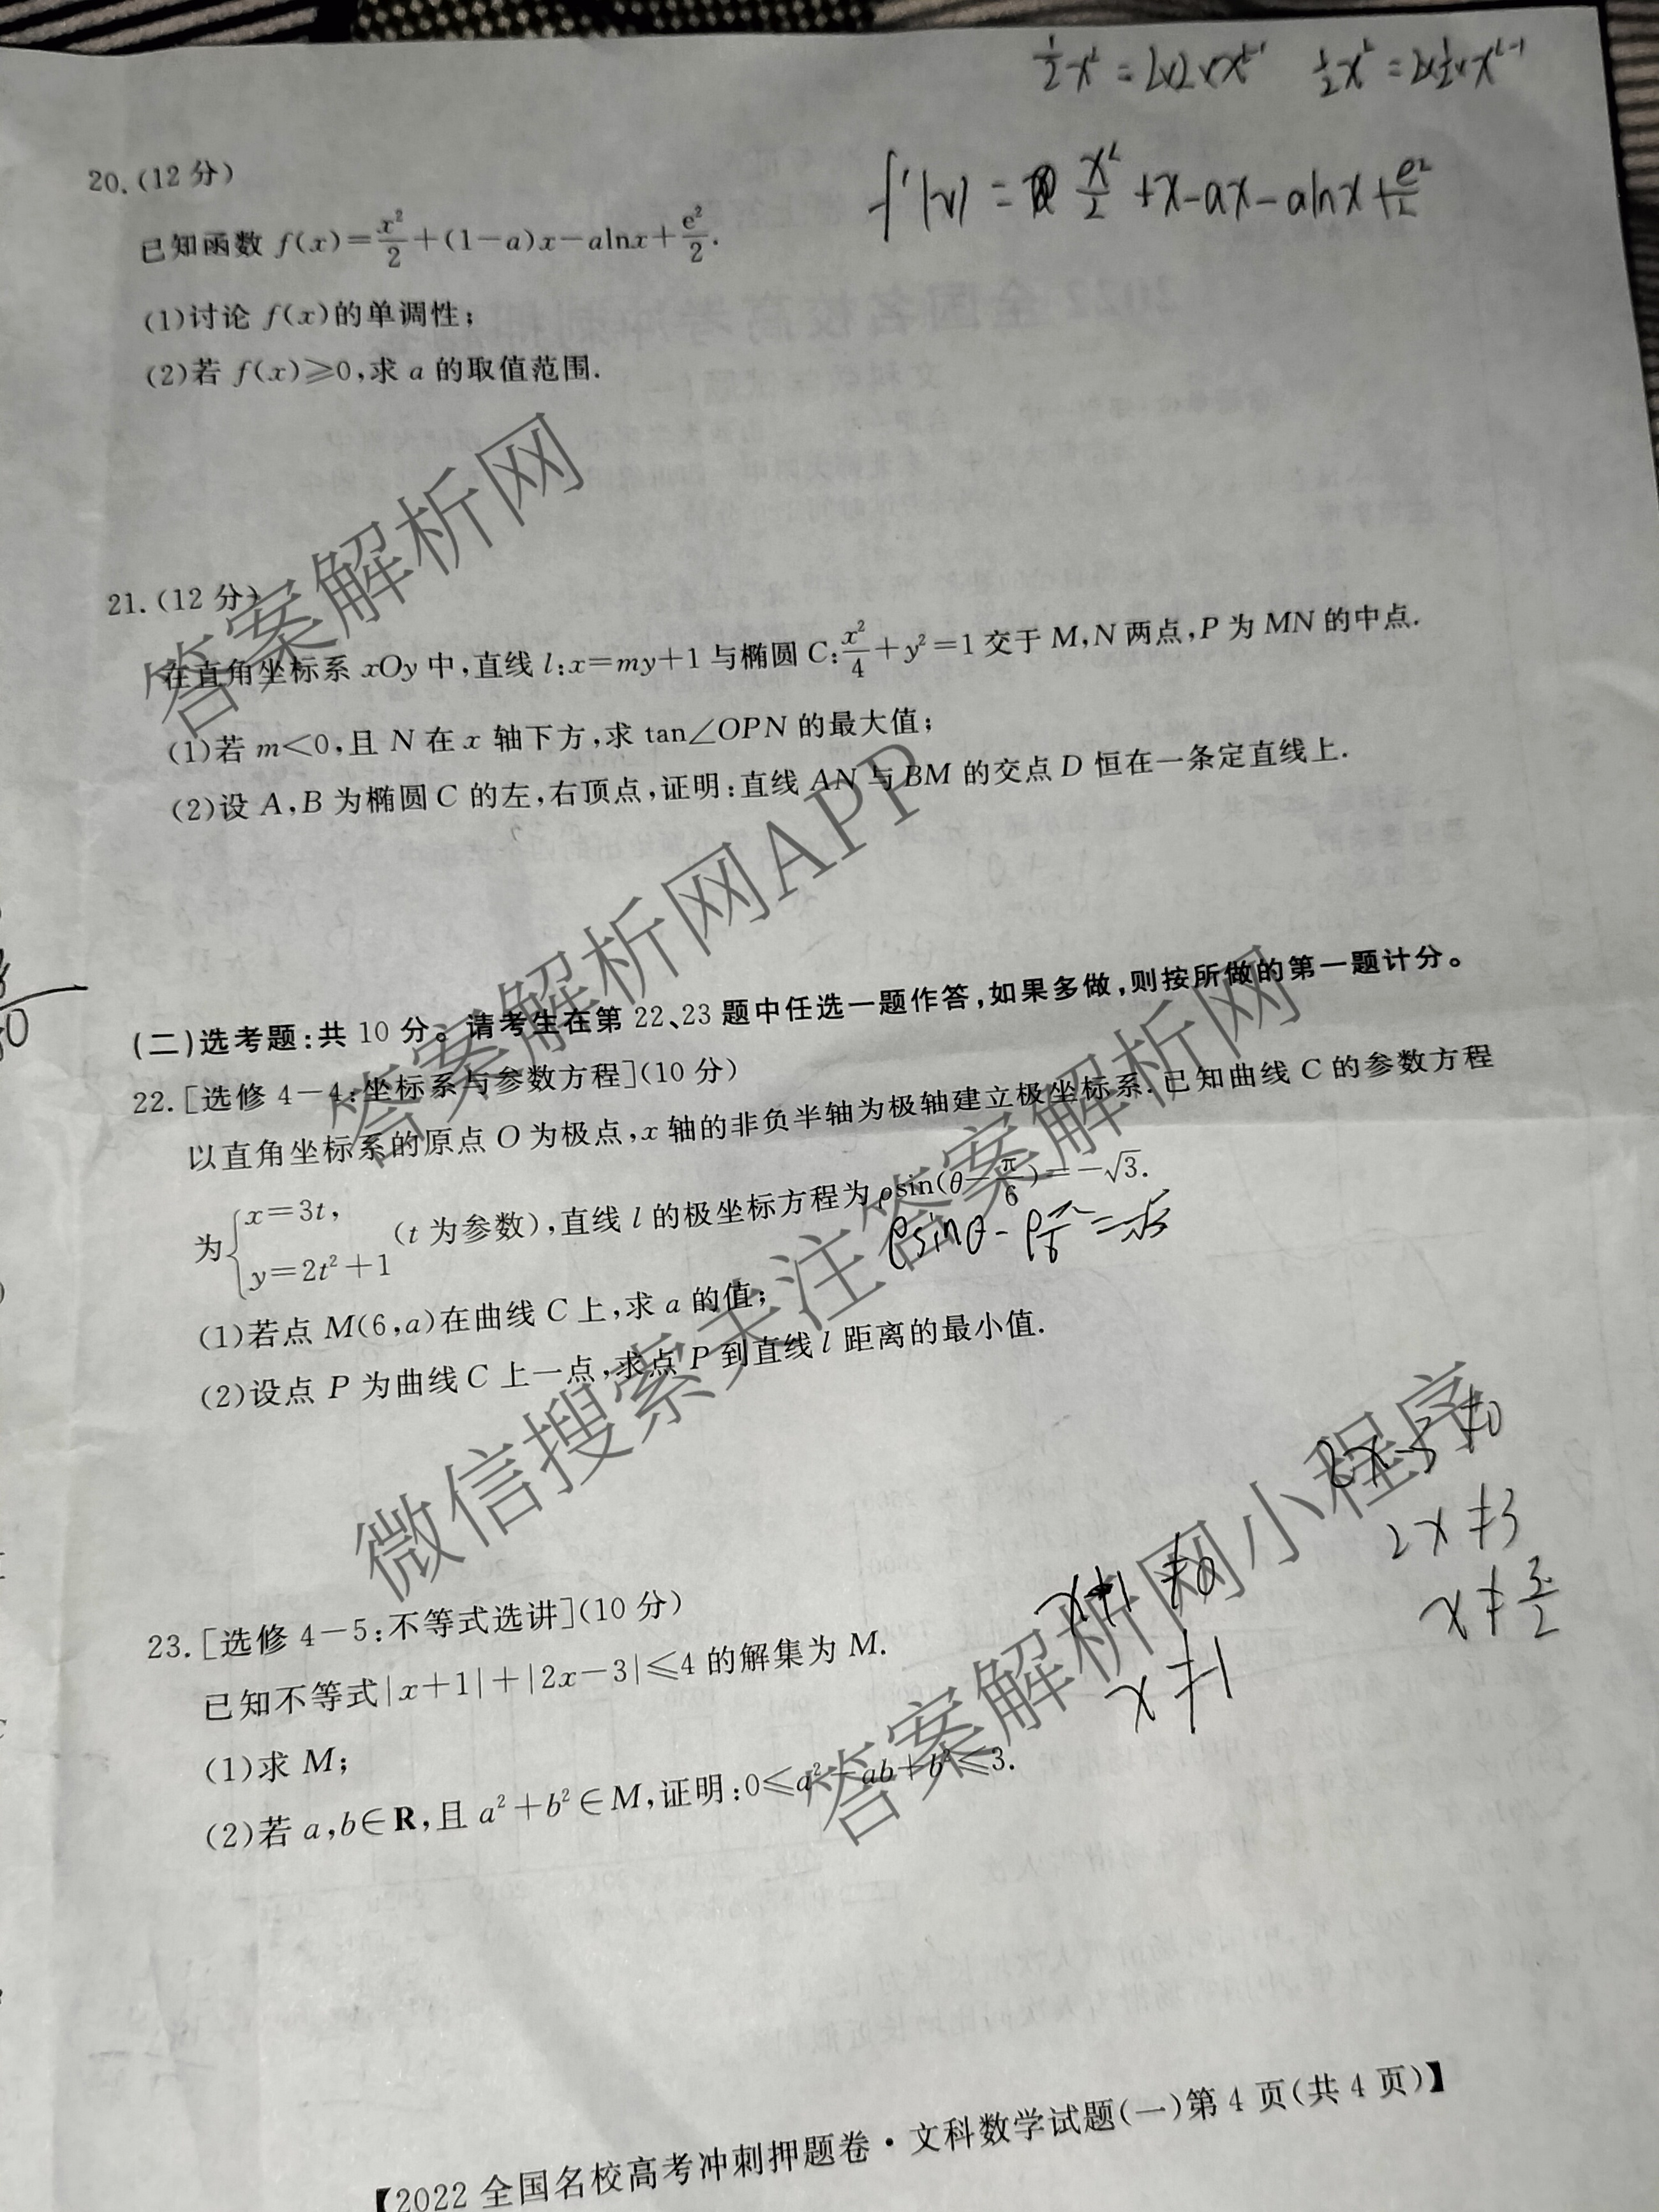 ½x²=2×2×x²⁻¹ ½x²=2×½×x²⁻¹
f'(x)=x²/2+x-ax-alnx+e²/2
20.(12分)
已知函数 f(x)=x²/2+(1-a)x-alnx+e²/2.
(1)讨论 f(x)的单调性;
(2)若 f(x)≥0,求 a 的取值范围.
21.(12分)
在直角坐标系 xOy 中,直线 l:x=my+1 与椭圆 C:x²/4+y²=1 交于 M,N 两点,P 为 MN 的中点.
(1)若 m<0,且 N 在 x 轴下方,求 tan∠OPN 的最大值;
(2)设 A,B 为椭圆 C 的左,右顶点,证明:直线 AN 与 BM 的交点 D 恒在一条定直线上.
(二)选考题:共 10 分。请考生在第 22、23 题中任选一题作答,如果多做,则按所做的第一题计分。
22.[选修 4-4:坐标系与参数方程](10分)
以直角坐标系的原点 O 为极点,x 轴的非负半轴为极轴建立极坐标系.已知曲线 C 的参数方程
为{x=3t, y=2t²+1 (t 为参数),直线 l 的极坐标方程为 ρsin(θ-π/6)=-√3.
ρsinθ-ρπ/6=-√3
(1)若点 M(6,a)在曲线 C 上,求 a 的值;
(2)设点 P 为曲线 C 上一点,求点 P 到直线 l 距离的最小值.
2x-3≠0
2x≠3
x≠3/2
x+1≠0
x≠-1
23.[选修 4-5:不等式选讲](10分)
已知不等式|x+1|+|2x-3|≤4 的解集为 M.
(1)求 M;
(2)若 a,b∈R,且 a²+b²∈M,证明:0≤a²-ab+b²≤3.
【2022 全国名校高考冲刺押题卷·文科数学试题(一)第 4 页(共 4 页)】
答案解析网
答案解析网APP
微信搜索关注答案解析网
答案解析网小程序